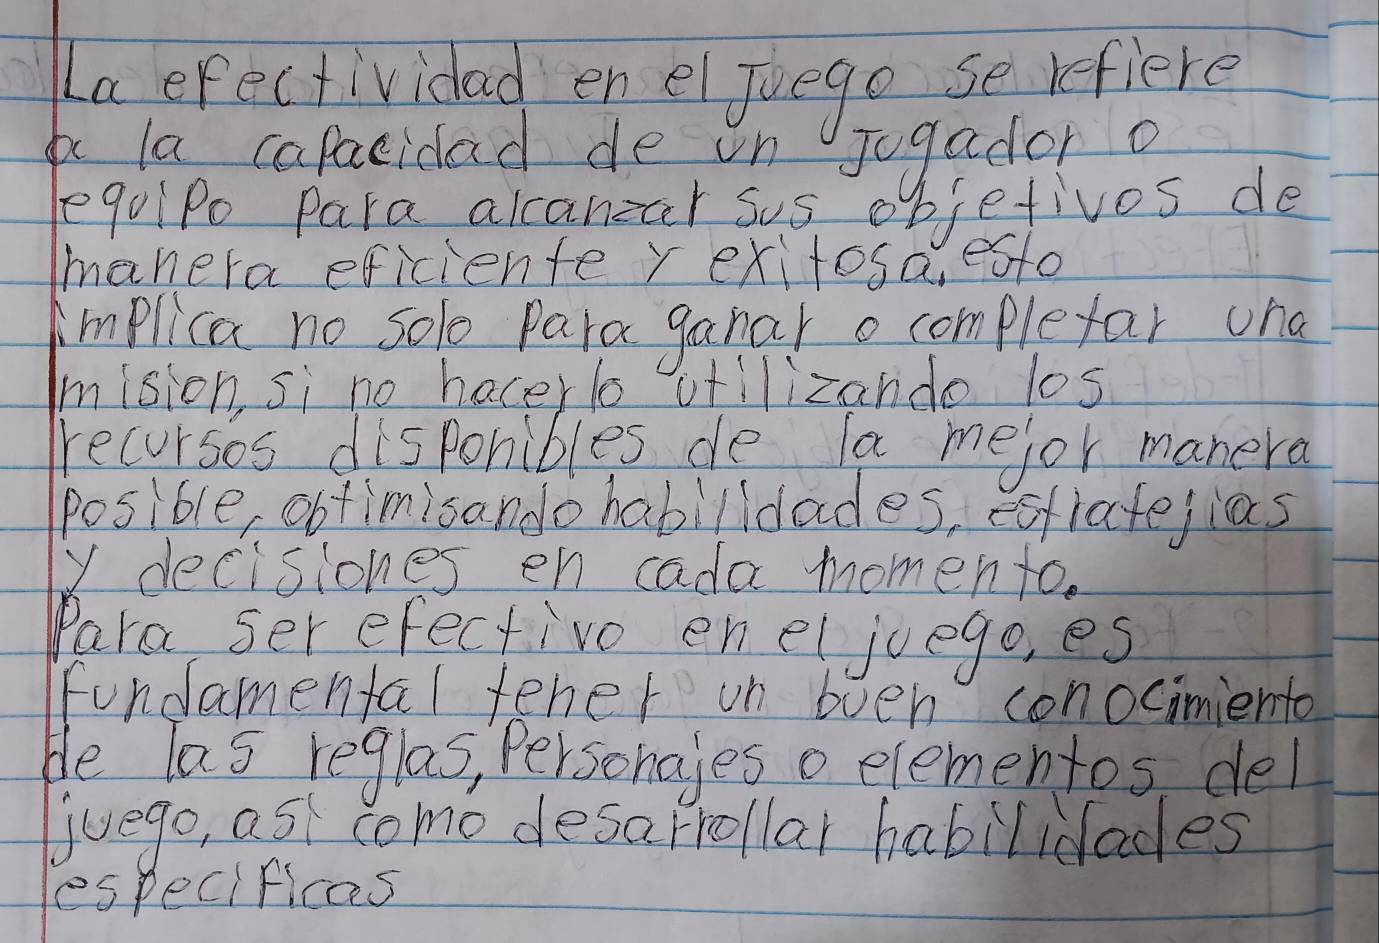 La efectividad en el Juego se refiere
a la capacidad de un Jugador o
equipo para alcanzar sus objetivos de
manera eficiente y exitosa, esto
implica no solo para ganar o completar una
mision, si no hacerlo utilizando los
recursos disponibles de la mejor manera
posible, obtimisando habilidades, estratejias
y decisiones en cada momento.
Para ser efectivo en el juego, es
fundamental tener un buen conocimiento
de las reglas, Personajes o elementos del
juego, asi como desarrollar habilidades
especificas